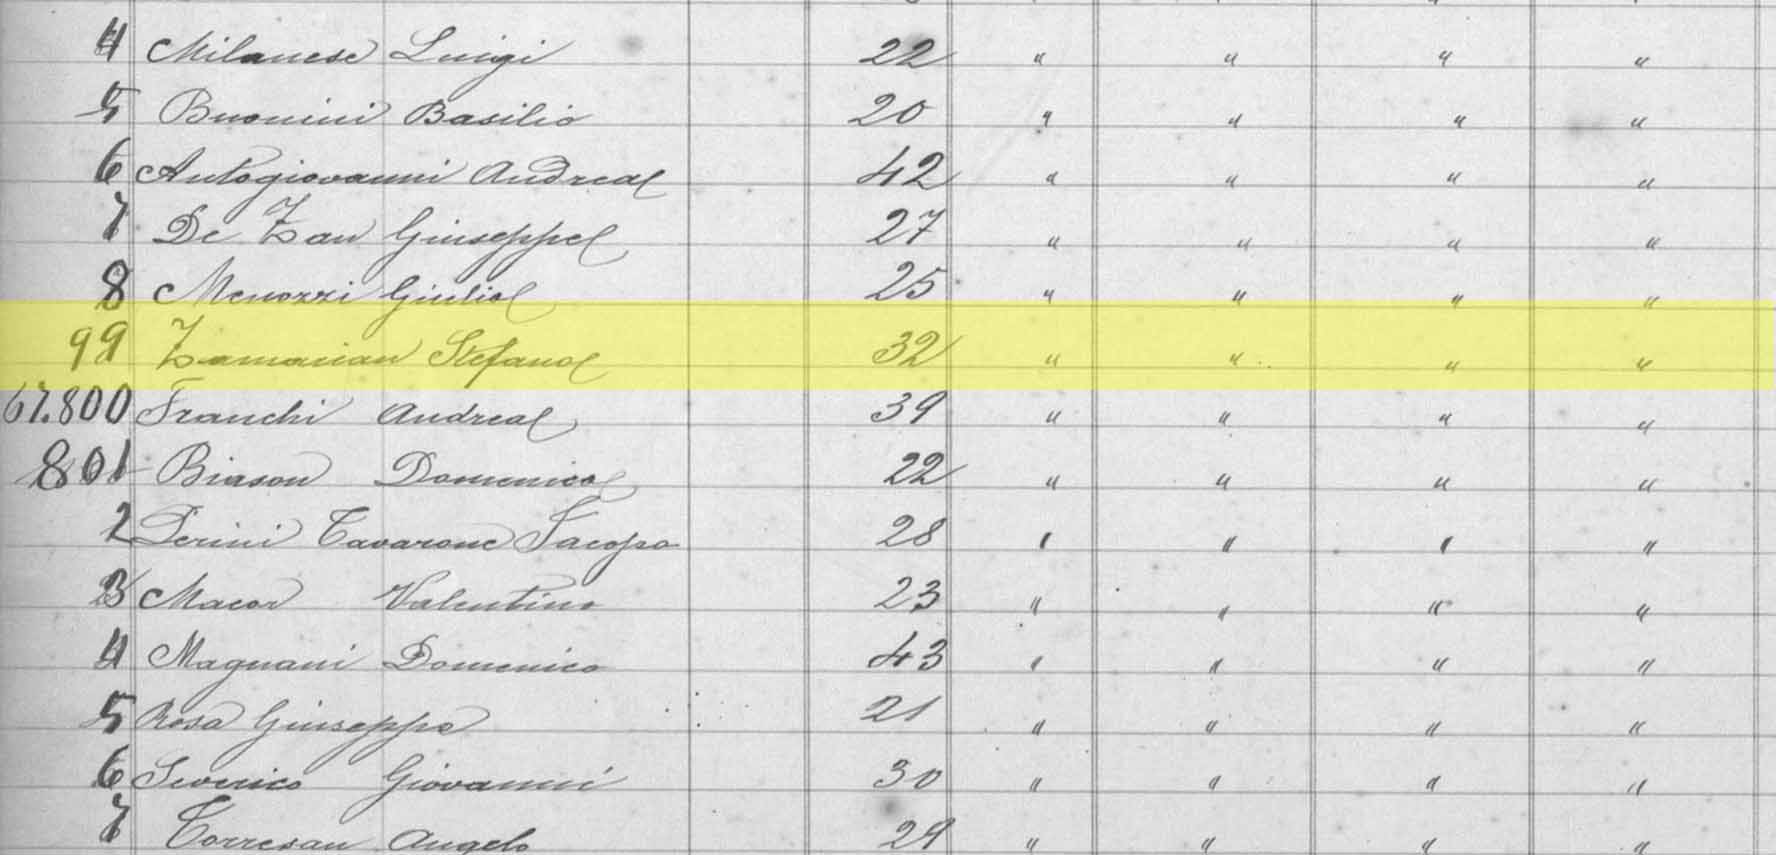 4 Milanese Luigi 22 " " " "
5 Buonini Basilio 20 " " " "
6 Antogiovanni Andrea 42 " " " "
7 De Zan Giuseppe 27 " " " "
8 Menozzi Giulio 25 " " " "
99 Zamarian Stefano 32 " " " "
67.800 Franchi Andrea 39 " " " "
801 Biason Domenico 22 " " " "
2 Perini Tavarone Jacopo 28 " " " "
3 Macor Valentino 23 " " " "
4 Magnani Domenico 43 " " " "
5 Rosa Giuseppe 21 " " " "
6 Giovanni 30 " " " "
7 Torresan Angelo 29 " " " "